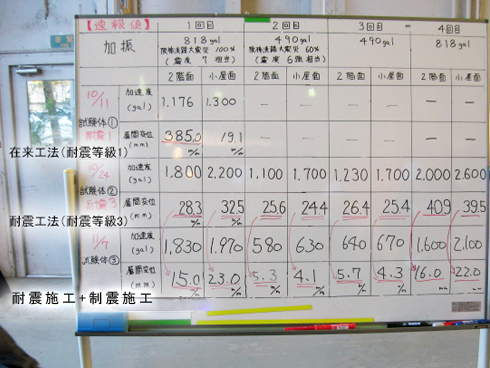 【速報値】 1回目 2回目 3回目 4回目
加振 818gal 490gal 490gal 818gal
阪神淡路大震災 100% 阪神淡路大震災 60%
(震度 7 相当) (震度 6強 相当)
2階面 小屋面 2階面 小屋面 2階面 小屋面 2階面 小屋面
10/11 加速度 (gal) 1.176 1.300 — — — — — —
試験体① 耐震1 層間変位 (mm) 385.0 19.1 — — — — — —
在来工法(耐震等級1)
10/24 加速度 (gal) 1.800 2,200 1.100 1.700 1.230 1.700 2.000 2.600
試験体② 耐震3 層間変位 (mm) 28.3 32.5 25.6 24.4 26.4 25.4 40.9 39.5
耐震工法(耐震等級3)
11/7 加速度 (gal) 1,830 1.970 580 630 640 670 1.600 2,100
試験体③ 層間変位 (mm) 15.0 23.0 5.3 4.1 5.7 4.3 16.0 22.0
耐震施工+制震施工